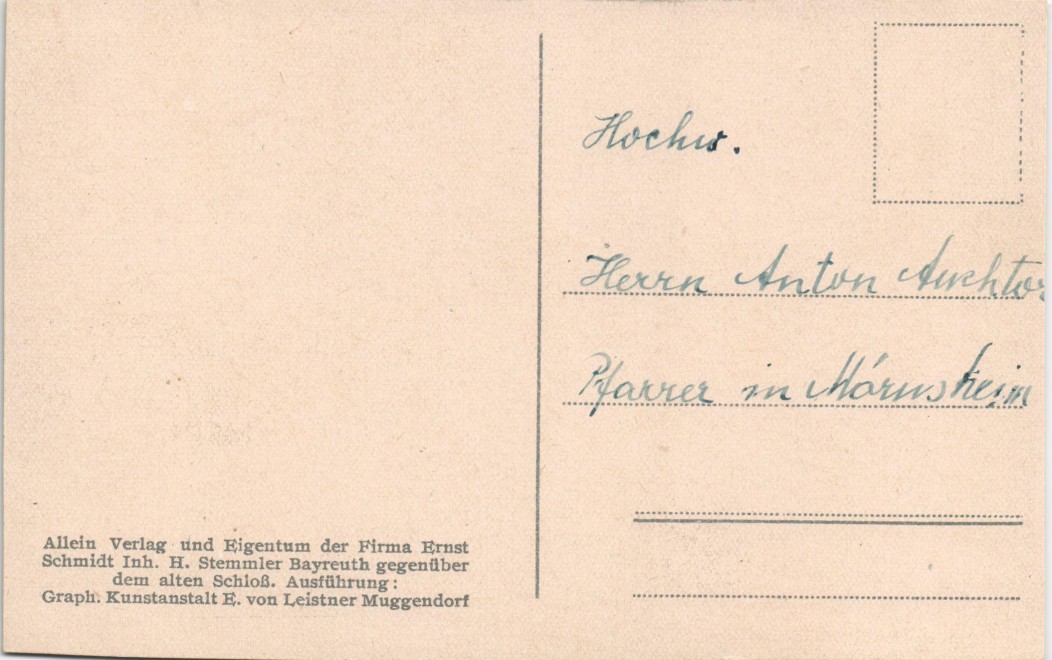 Hochw.
Herrn Anton Auchtor
Pfarrer in Mörnsheim
Allein Verlag und Eigentum der Firma Ernst
Schmidt Inh. H. Stemmler Bayreuth gegenüber
dem alten Schloß. Ausführung:
Graph. Kunstanstalt E. von Leistner Muggendorf